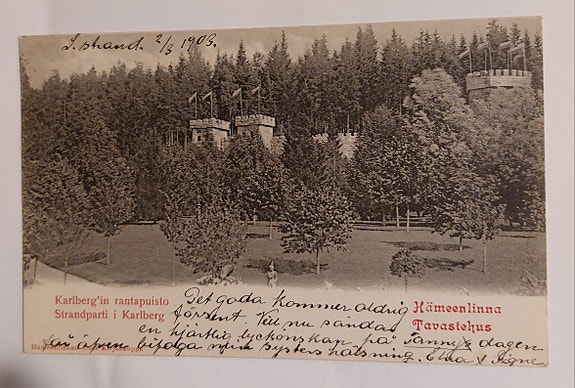 L. strand. 2/3 1903.
Karlberg'in rantapuisto
Strandparti i Karlberg
Hämeenlinna
Tavastehus
Det goda kommer aldrig
försent Vill nu sända
en hjärtlig lyckönskan på Fannys dagen
äfven bifoga min systers hälsning. Signe